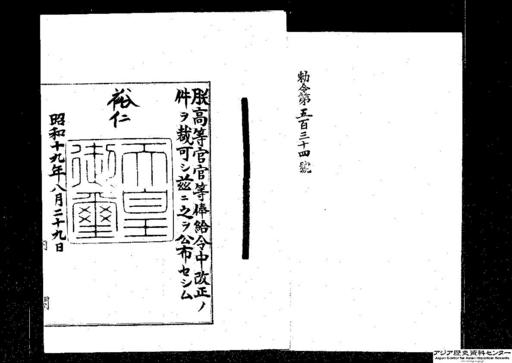 勅令第五百三十四號
朕高等官官等俸給令中改正ノ
件ヲ裁可シ茲ニ之ヲ公布セシム
裕仁
天皇
御璽
昭和十九年八月二十九日
アジア歴史資料センター
Japan Center for Asian Historical Records